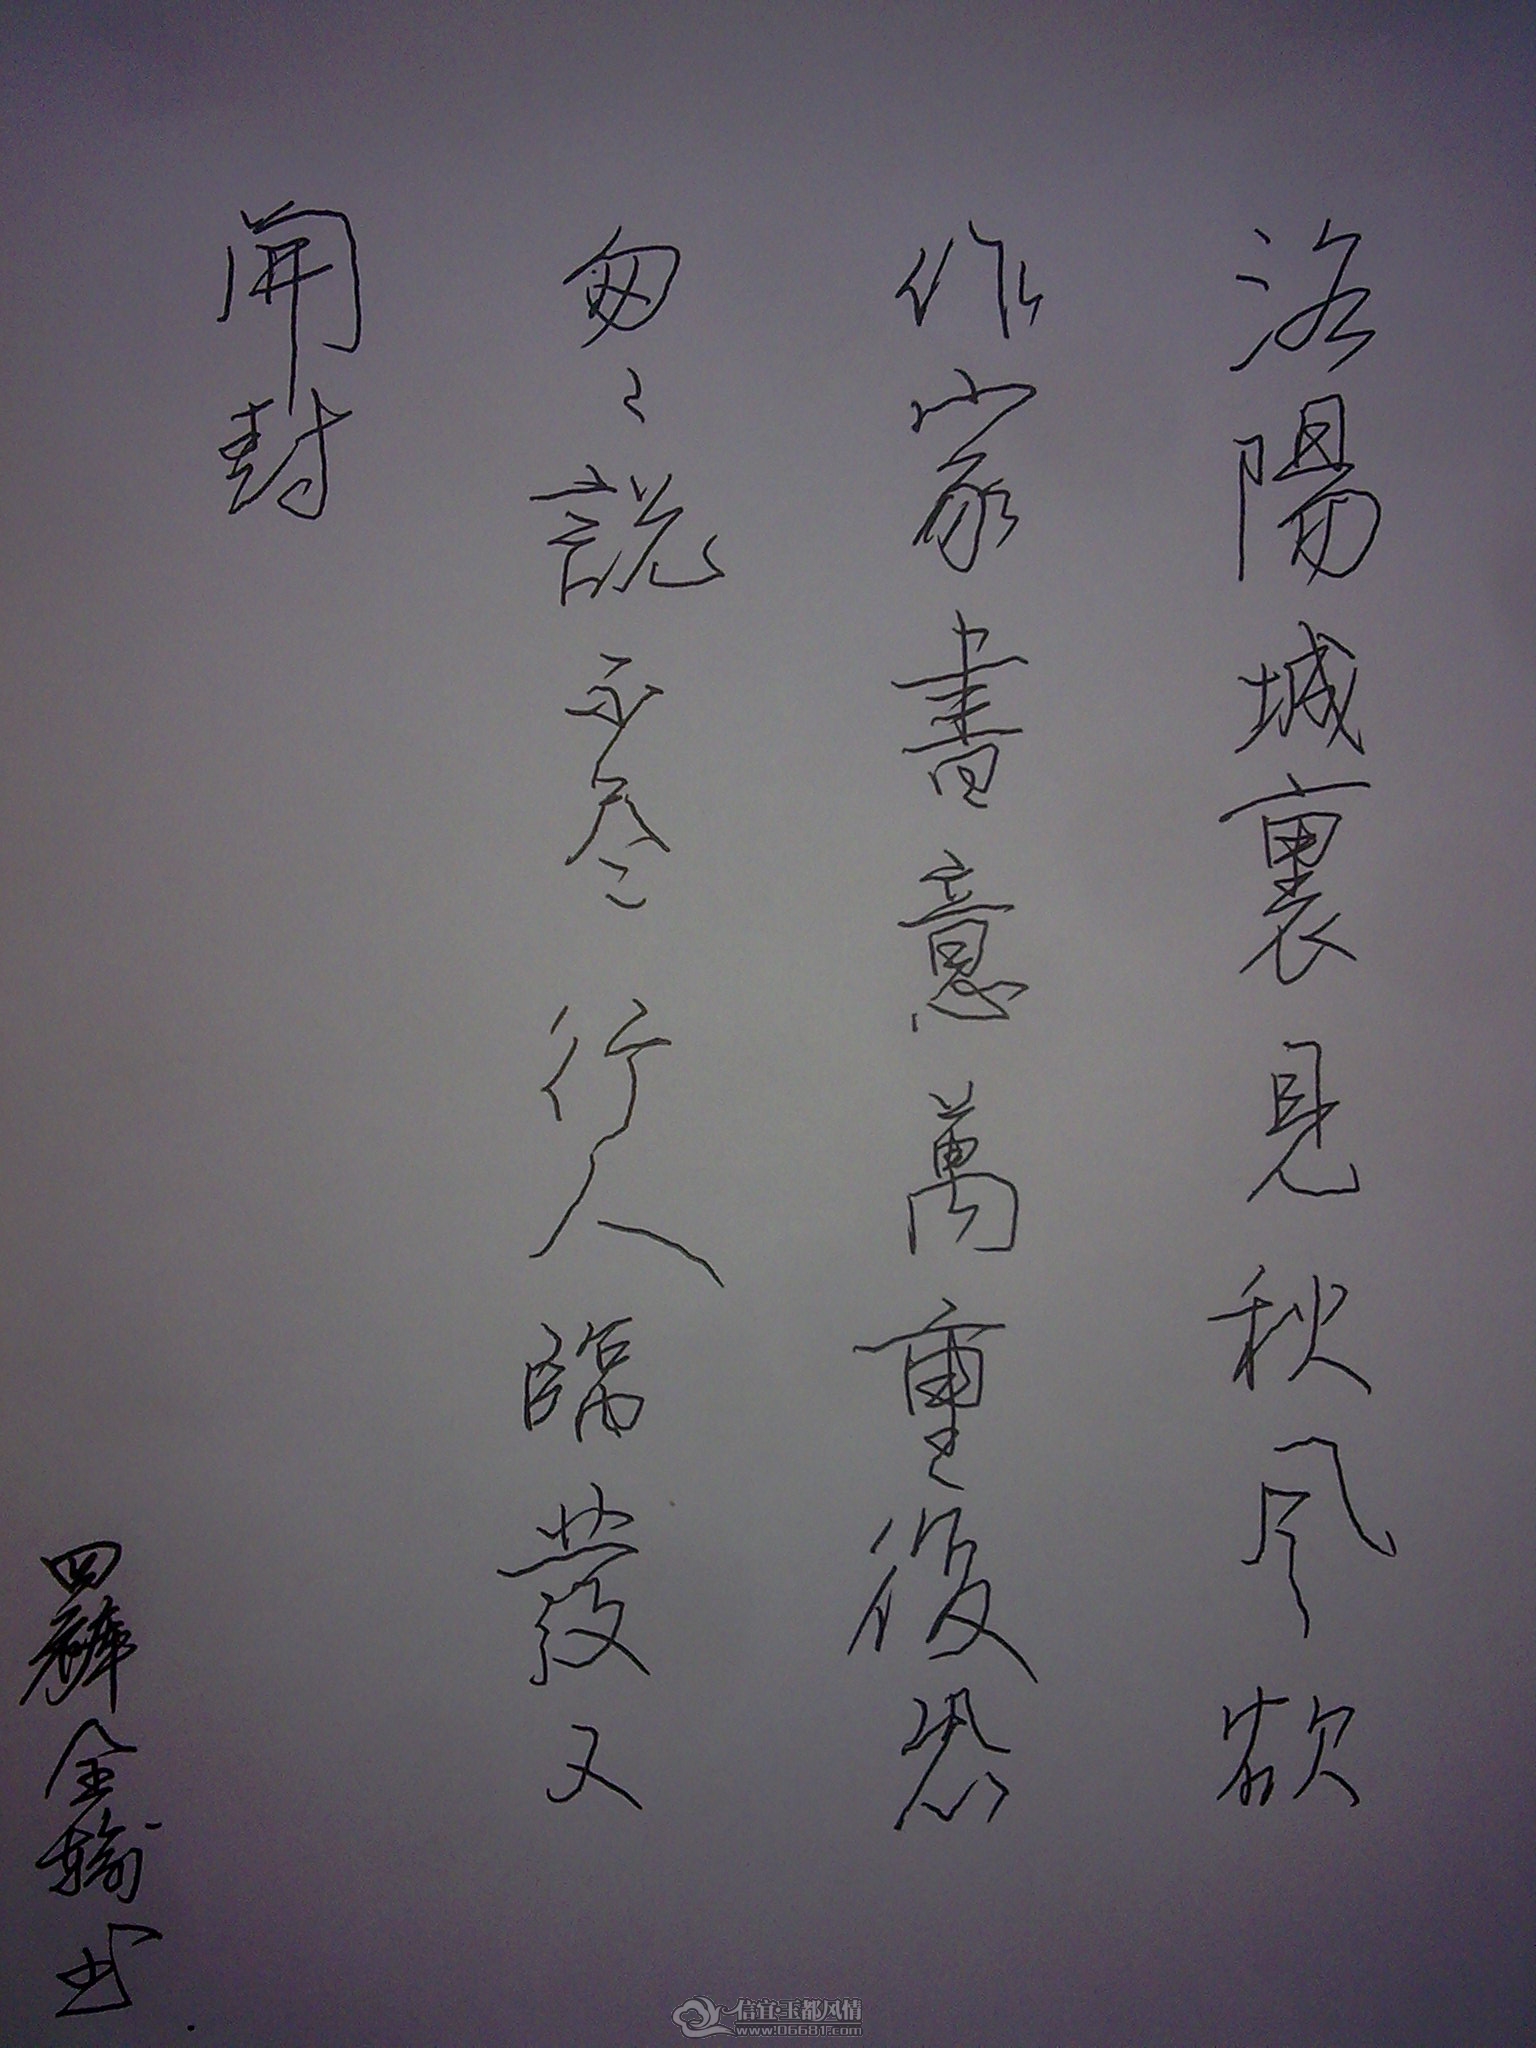 洛陽城裏見秋风欲
作家書意萬重復恐
匆々説不尽行人臨發又
開封
全輸书
信宜·玉都风情
www.06681.com